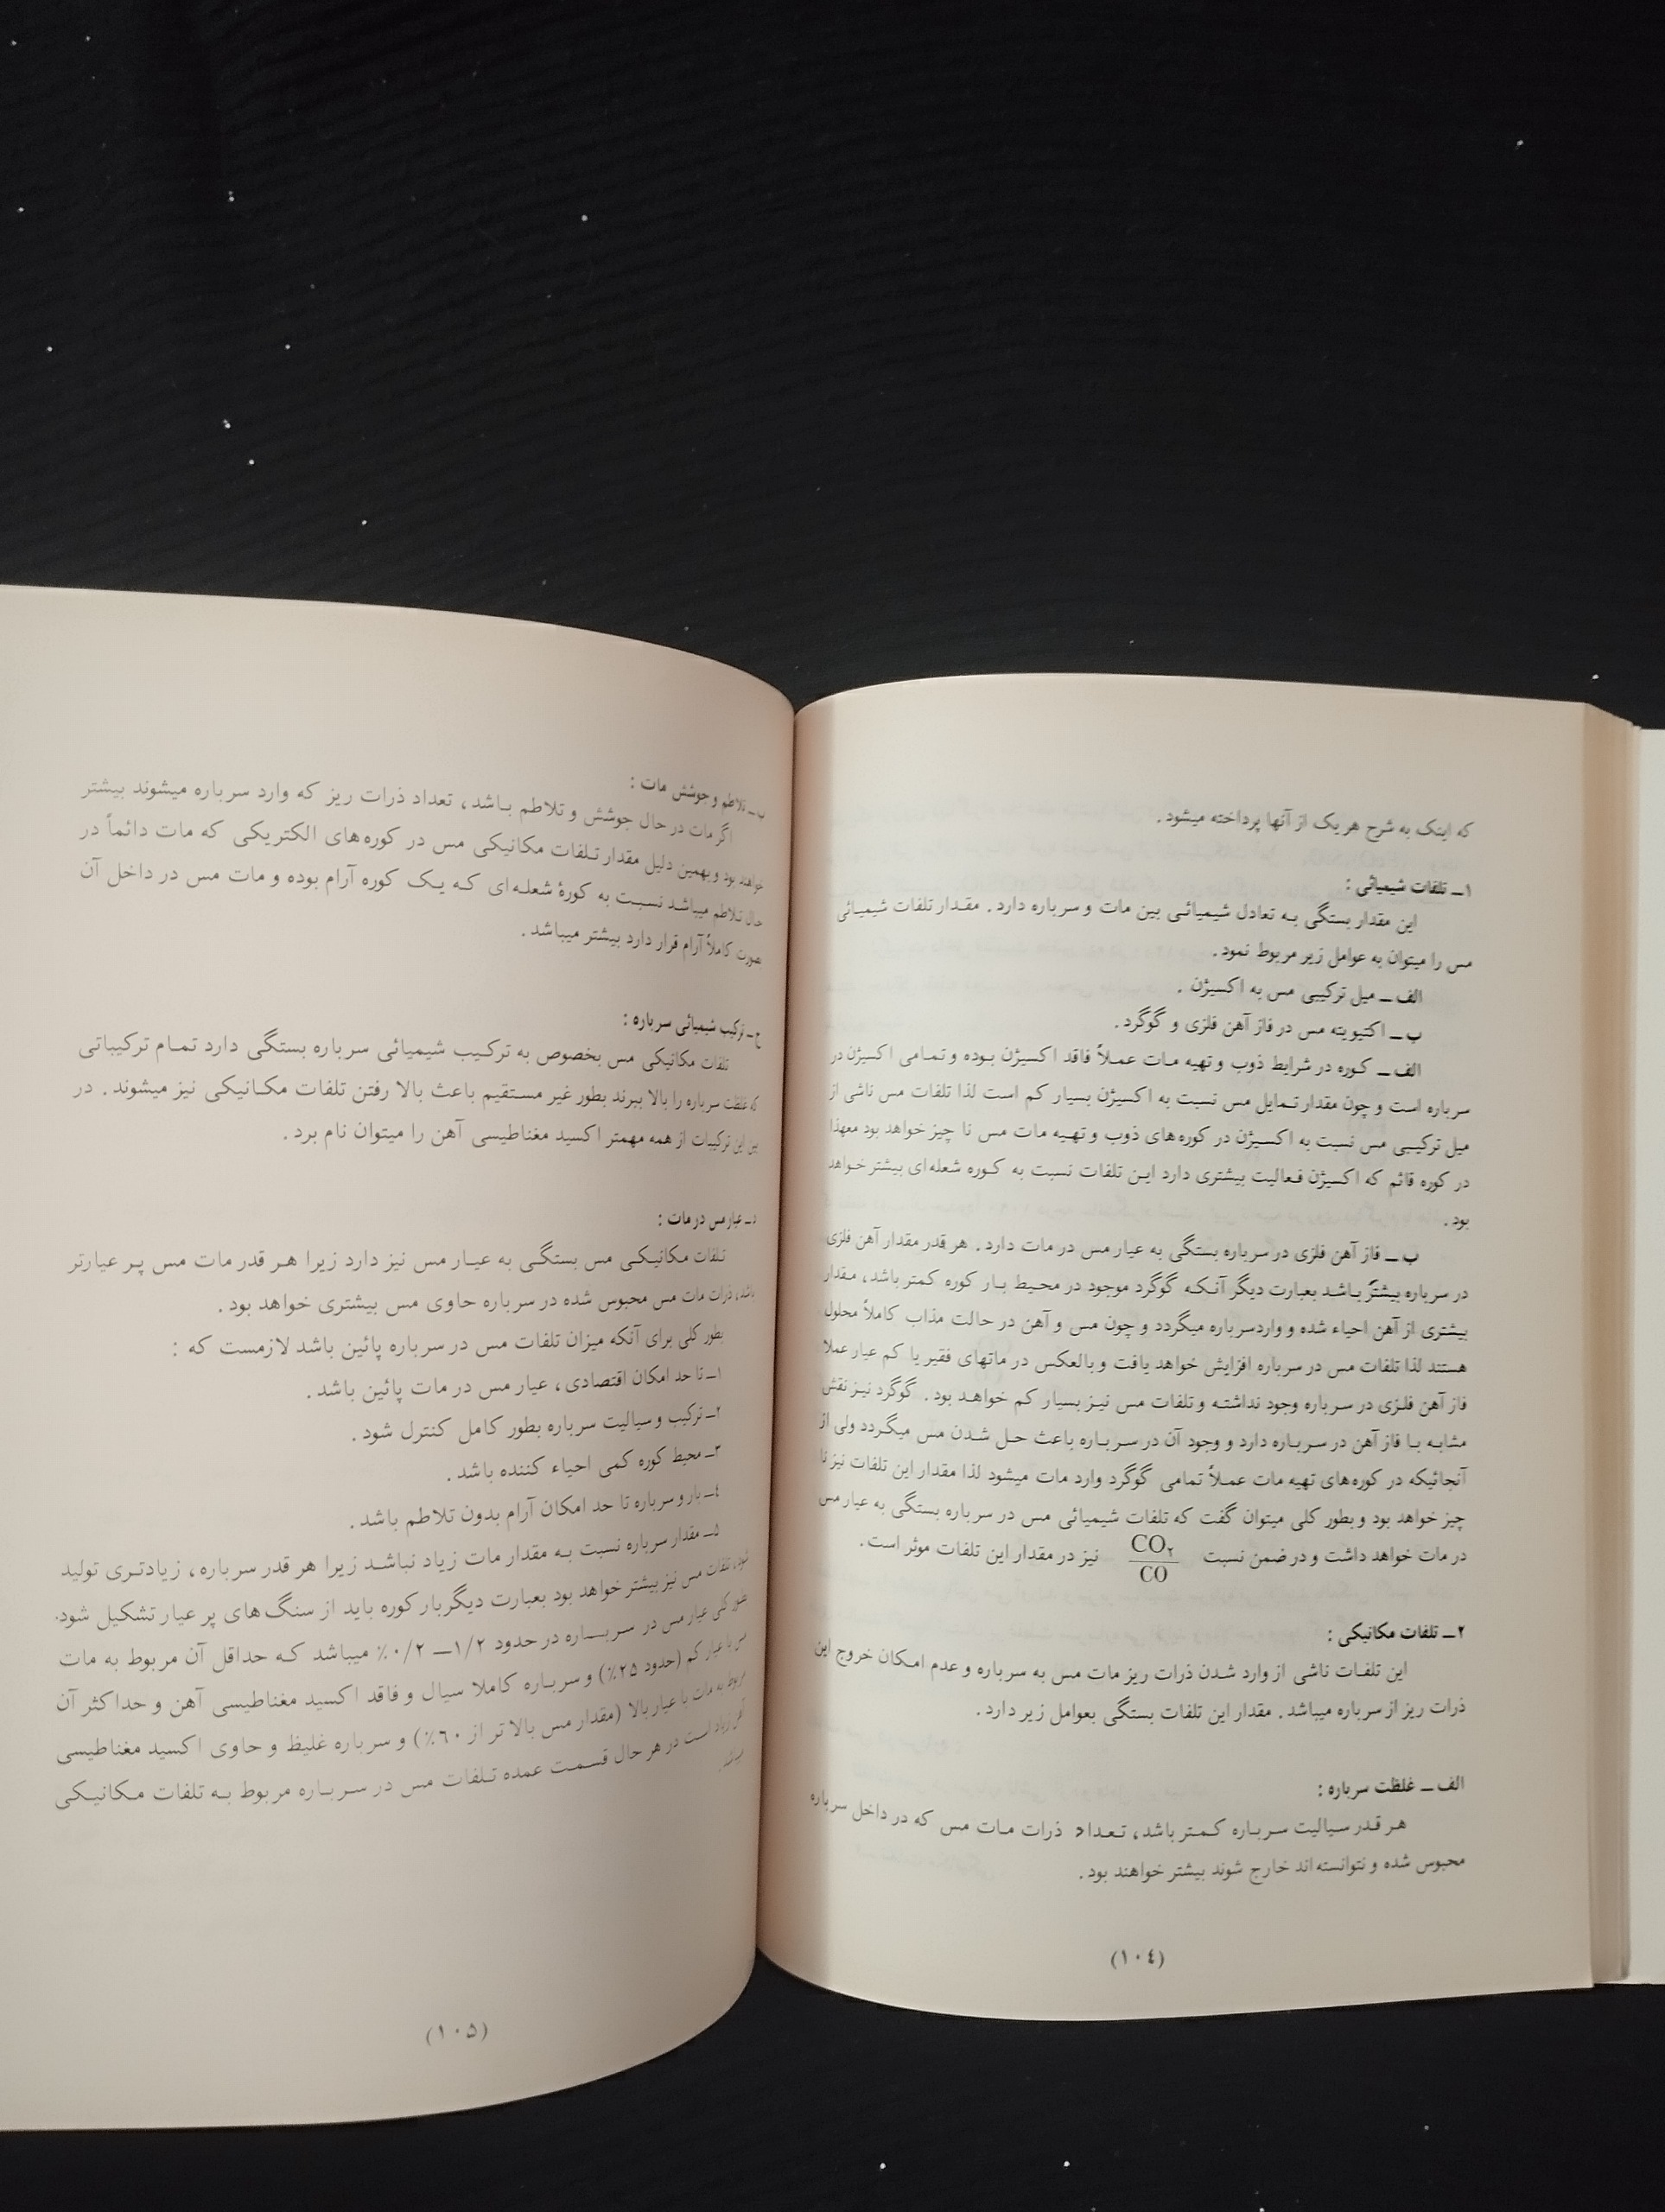 که اینک به شرح هر یک از آنها پرداخته میشود.
۱ــ تلفات شیمیائی :
این مقدار بستگی به تعادل شیمیائی بین مات و سرباره دارد. مقدار تلفات شیمیائی
مس را میتوان به عوامل زیر مربوط نمود.
الف ــ میل ترکیبی مس به اکسیژن .
ب ــ اکتیویته مس در فاز آهن فلزی و گوگرد.
الف ــ کوره در شرایط ذوب و تهیه مات عملاً فاقد اکسیژن بوده و تمامی اکسیژن در
سرباره است و چون مقدار تمایل مس نسبت به اکسیژن بسیار کم است لذا تلفات مس ناشی از
میل ترکیبی مس نسبت به اکسیژن در کوره‌های ذوب و تهیه مات مس نا چیز خواهد بود معهذا
در کوره قائم که اکسیژن فعالیت بیشتری دارد این تلفات نسبت به کوره شعله‌ای بیشتر خواهد
بود.
ب ــ فاز آهن فلزی در سرباره بستگی به عیار مس در مات دارد. هر قدر مقدار آهن فلزی
در سرباره بیشتر باشد بعبارت دیگر آنکه گوگرد موجود در محیط بار کوره کمتر باشد، مقدار
بیشتری از آهن احیاء شده و وارد سرباره میگردد و چون مس و آهن در حالت مذاب کاملاً محلول
هستند لذا تلفات مس در سرباره افزایش خواهد یافت و بالعکس در ماتهای فقیر یا کم عیار عملا
فاز آهن فلزی در سرباره وجود نداشته و تلفات مس نیز بسیار کم خواهد بود. گوگرد نیز نقش
مشابه با فاز آهن در سرباره دارد و وجود آن در سرباره باعث حل شدن مس میگردد ولی از
آنجائیکه در کوره‌های تهیه مات عملاً تمامی گوگرد وارد مات میشود لذا مقدار این تلفات نیز نا
چیز خواهد بود و بطور کلی میتوان گفت که تلفات شیمیائی مس در سرباره بستگی به عیار مس
در مات خواهد داشت و در ضمن نسبت CO۲/CO نیز در مقدار این تلفات موثر است.
۲ــ تلفات مکانیکی :
این تلفات ناشی از وارد شدن ذرات ریز مات مس به سرباره و عدم امکان خروج این
ذرات ریز از سرباره میباشد. مقدار این تلفات بستگی بعوامل زیر دارد.
الف ــ غلظت سرباره :
هر قدر سیالیت سرباره کمتر باشد، تعداد ذرات مات مس که در داخل سرباره
محبوس شده و نتوانسته‌اند خارج شوند بیشتر خواهند بود.
(۱۰٤)
ب ــ تلاطم و جوشش مات :
اگر مات در حال جوشش و تلاطم باشد، تعداد ذرات ریز که وارد سرباره میشوند بیشتر
خواهند بود و بهمین دلیل مقدار تلفات مکانیکی مس در کوره‌های الکتریکی که مات دائماً در
حال تلاطم میباشد نسبت به کورهٔ شعله‌ای که یک کوره آرام بوده و مات مس در داخل آن
بصورت کاملاً آرام قرار دارد بیشتر میباشد.
ج ــ ترکیب شیمیائی سرباره :
تلفات مکانیکی مس بخصوص به ترکیب شیمیائی سرباره بستگی دارد تمام ترکیباتی
که غلظت سرباره را بالا ببرند بطور غیر مستقیم باعث بالا رفتن تلفات مکانیکی نیز میشوند. در
بین این ترکیبات از همه مهمتر اکسید مغناطیسی آهن را میتوان نام برد.
د ــ عیار مس در مات :
تلفات مکانیکی مس بستگی به عیار مس نیز دارد زیرا هر قدر مات مس پر عیارتر
باشد، ذرات مات مس محبوس شده در سرباره حاوی مس بیشتری خواهد بود.
بطور کلی برای آنکه میزان تلفات مس در سرباره پائین باشد لازمست که :
۱ــ تا حد امکان اقتصادی، عیار مس در مات پائین باشد.
۲ــ ترکیب و سیالیت سرباره بطور کامل کنترل شود.
۳ــ محیط کوره کمی احیاء کننده باشد.
٤ــ بار و سرباره تا حد امکان آرام بدون تلاطم باشد.
۵ــ مقدار سرباره نسبت به مقدار مات زیاد نباشد زیرا هر قدر سرباره، زیادتری تولید
شود، تلفات مس نیز بیشتر خواهد بود بعبارت دیگر بار کوره باید از سنگ‌های پر عیار تشکیل شود.
بطور کلی عیار مس در سرباره در حدود ۱/۲ــ ۰/۲٪ میباشد که حداقل آن مربوط به مات
مس با عیار کم (حدود ۲۵٪) و سرباره کاملا سیال و فاقد اکسید مغناطیسی آهن و حداکثر آن
مربوط به مات با عیار بالا (مقدار مس بالا تر از ٦۰٪) و سرباره غلیظ و حاوی اکسید مغناطیسی
آهن زیاد است در هر حال قسمت عمده تلفات مس در سرباره مربوط به تلفات مکانیکی
میباشد.
(۱۰۵)